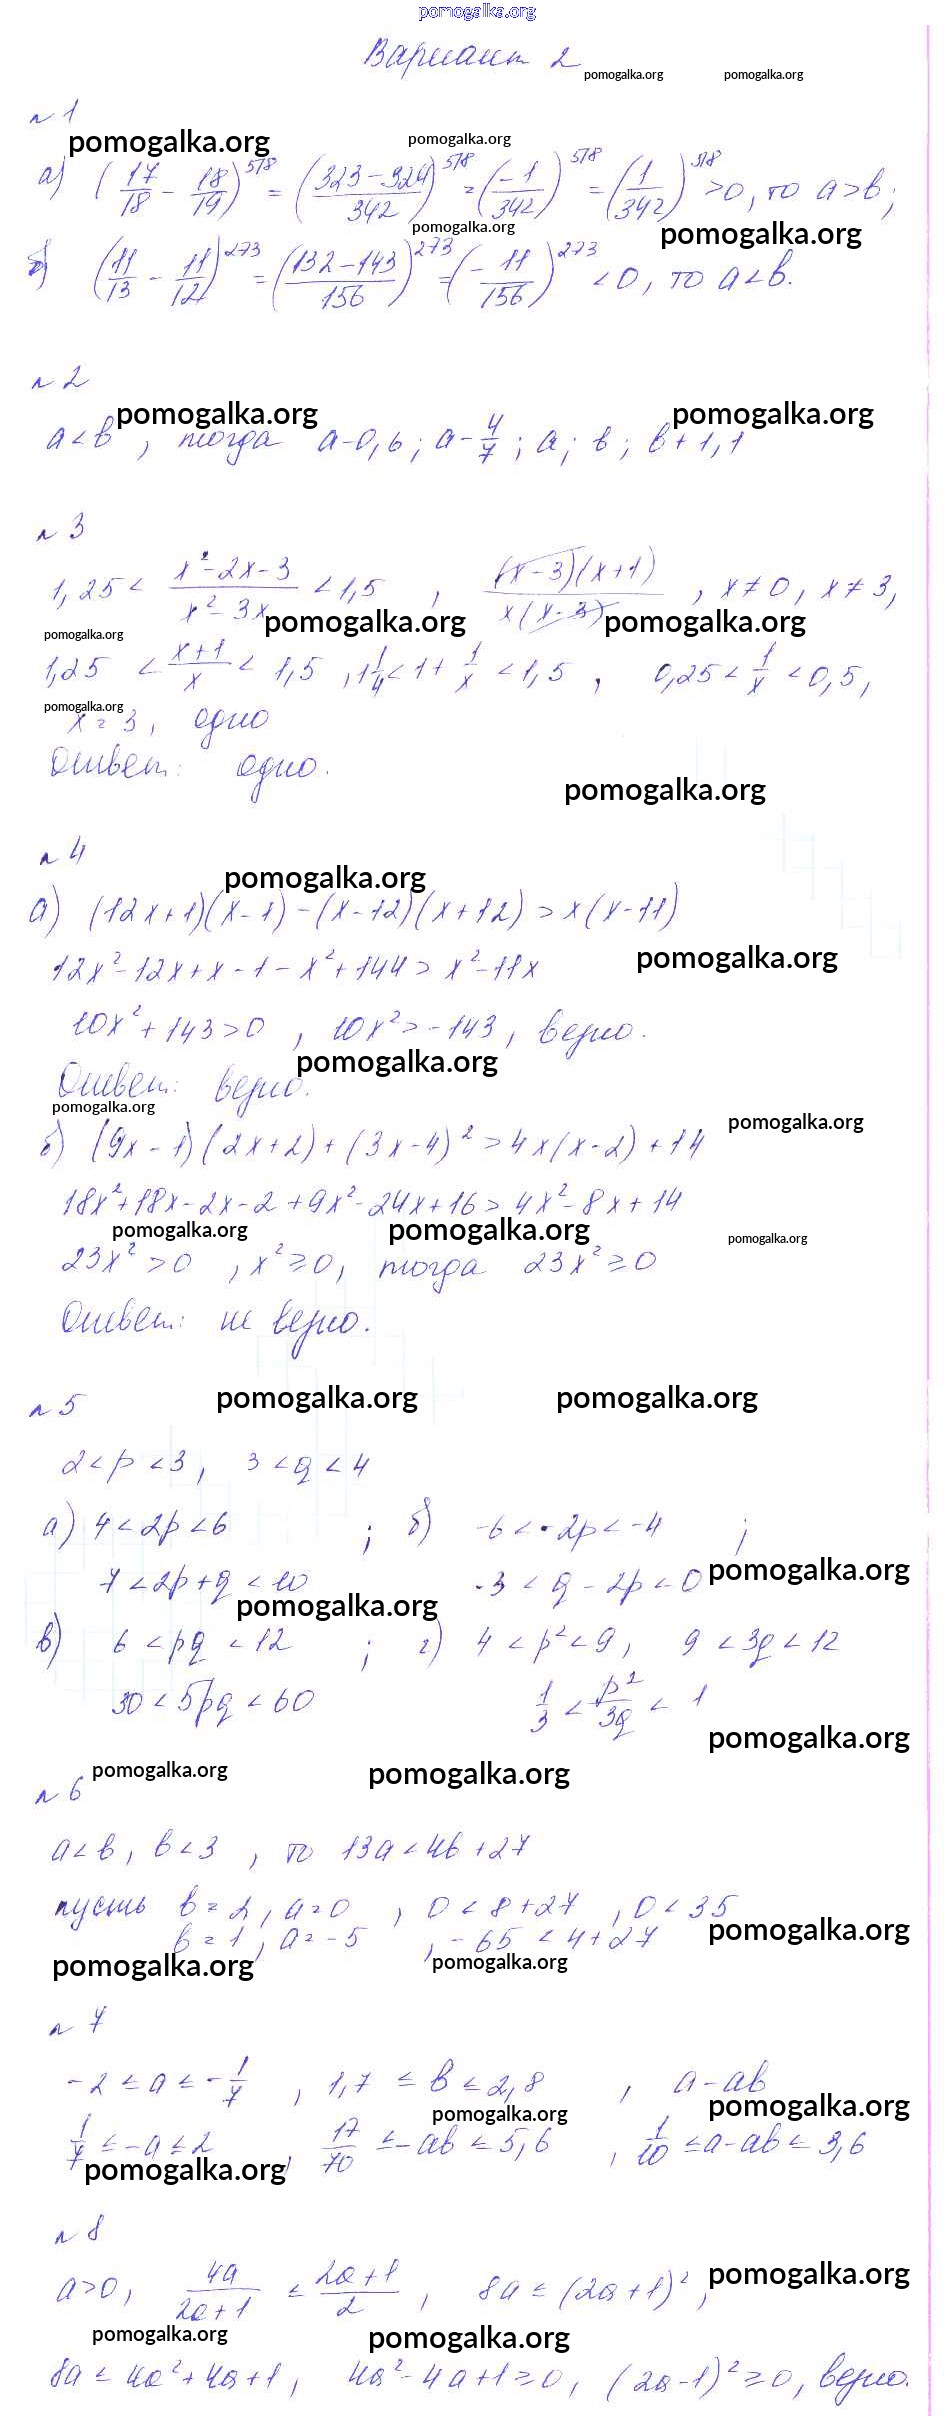 pomogalka.org
Вариант 2
pomogalka.org pomogalka.org
№1
pomogalka.org pomogalka.org
а) (17/18 - 18/19)^578 = ((323-324)/342)^578 = (-1/342)^578 = (1/342)^578 >0, то a>b;
pomogalka.org pomogalka.org
б) (11/13 - 11/12)^273 = ((132-143)/156)^273 = (-11/156)^273 <0, то a<b.
№2
pomogalka.org pomogalka.org
a<b, тогда a-0,6; a-4/7; a; b; b+1,1
№3
1,25 < (x²-2x-3)/(x²-3x) < 1,5, (x-3)(x+1)/x(x-3), x≠0, x≠3,
pomogalka.org pomogalka.org
pomogalka.org
1,25 < (x+1)/x < 1,5, 1 1/4 < 1+1/x < 1,5, 0,25 < 1/x < 0,5,
pomogalka.org
x=3, одно
Ответ: одно.
pomogalka.org
№4
pomogalka.org
а) (12x+1)(x-1)-(x-12)(x+12)>x(x-11)
pomogalka.org
12x²-12x+x-1-x²+144>x²-11x
10x²+143>0, 10x²>-143, верно.
pomogalka.org
Ответ: верно.
pomogalka.org pomogalka.org
б) (9x-1)(2x+2)+(3x-4)²>4x(x-2)+14
18x²+18x-2x-2+9x²-24x+16>4x²-8x+14
pomogalka.org pomogalka.org pomogalka.org
23x²>0, x²≥0, тогда 23x²≥0
Ответ: не верно.
pomogalka.org pomogalka.org
№5
2<p<3, 3<q<4
а) 4<2p<6; б) -6<-2p<-4;
7<2p+q<10 -3<q-2p<0
pomogalka.org pomogalka.org
в) 6<pq<12; г) 4<p²<9, 9<3q<12
30<5pq<60 1/3<p²/3q<1
pomogalka.org
pomogalka.org pomogalka.org
№6
a<b, b<3, то 13a<4b+27
пусть b=2, a=0, 0<8+27, 0<35
pomogalka.org
b=1, a=-5, -65<4+27
pomogalka.org pomogalka.org
№7
-2≤a≤-1/7, 1,7≤b≤2,8, a-ab
pomogalka.org pomogalka.org
1/7≤-a≤2, 17/70≤-ab≤5,6, 1/10≤a-ab≤3,6
pomogalka.org
№8
pomogalka.org
a>0, 4a/(2a+1) ≤ (2a+1)/2, 8a≤(2a+1)²,
pomogalka.org pomogalka.org
8a≤4a²+4a+1, 4a²-4a+1≥0, (2a-1)²≥0, верно.